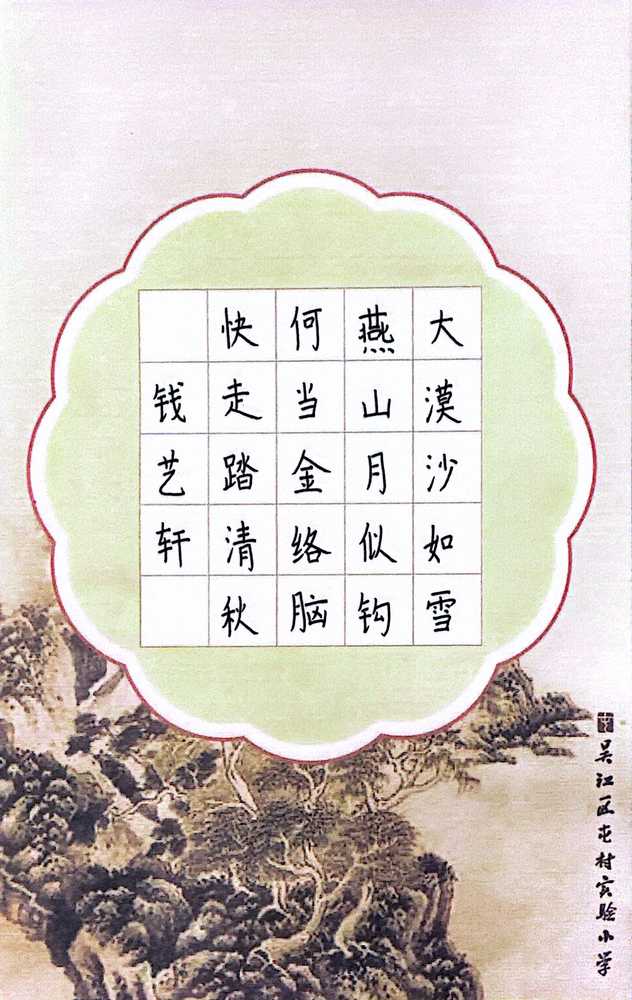 大漠沙如雪
燕山月似钩
何当金络脑
快走踏清秋
钱艺轩
吴江区屯村实验小学